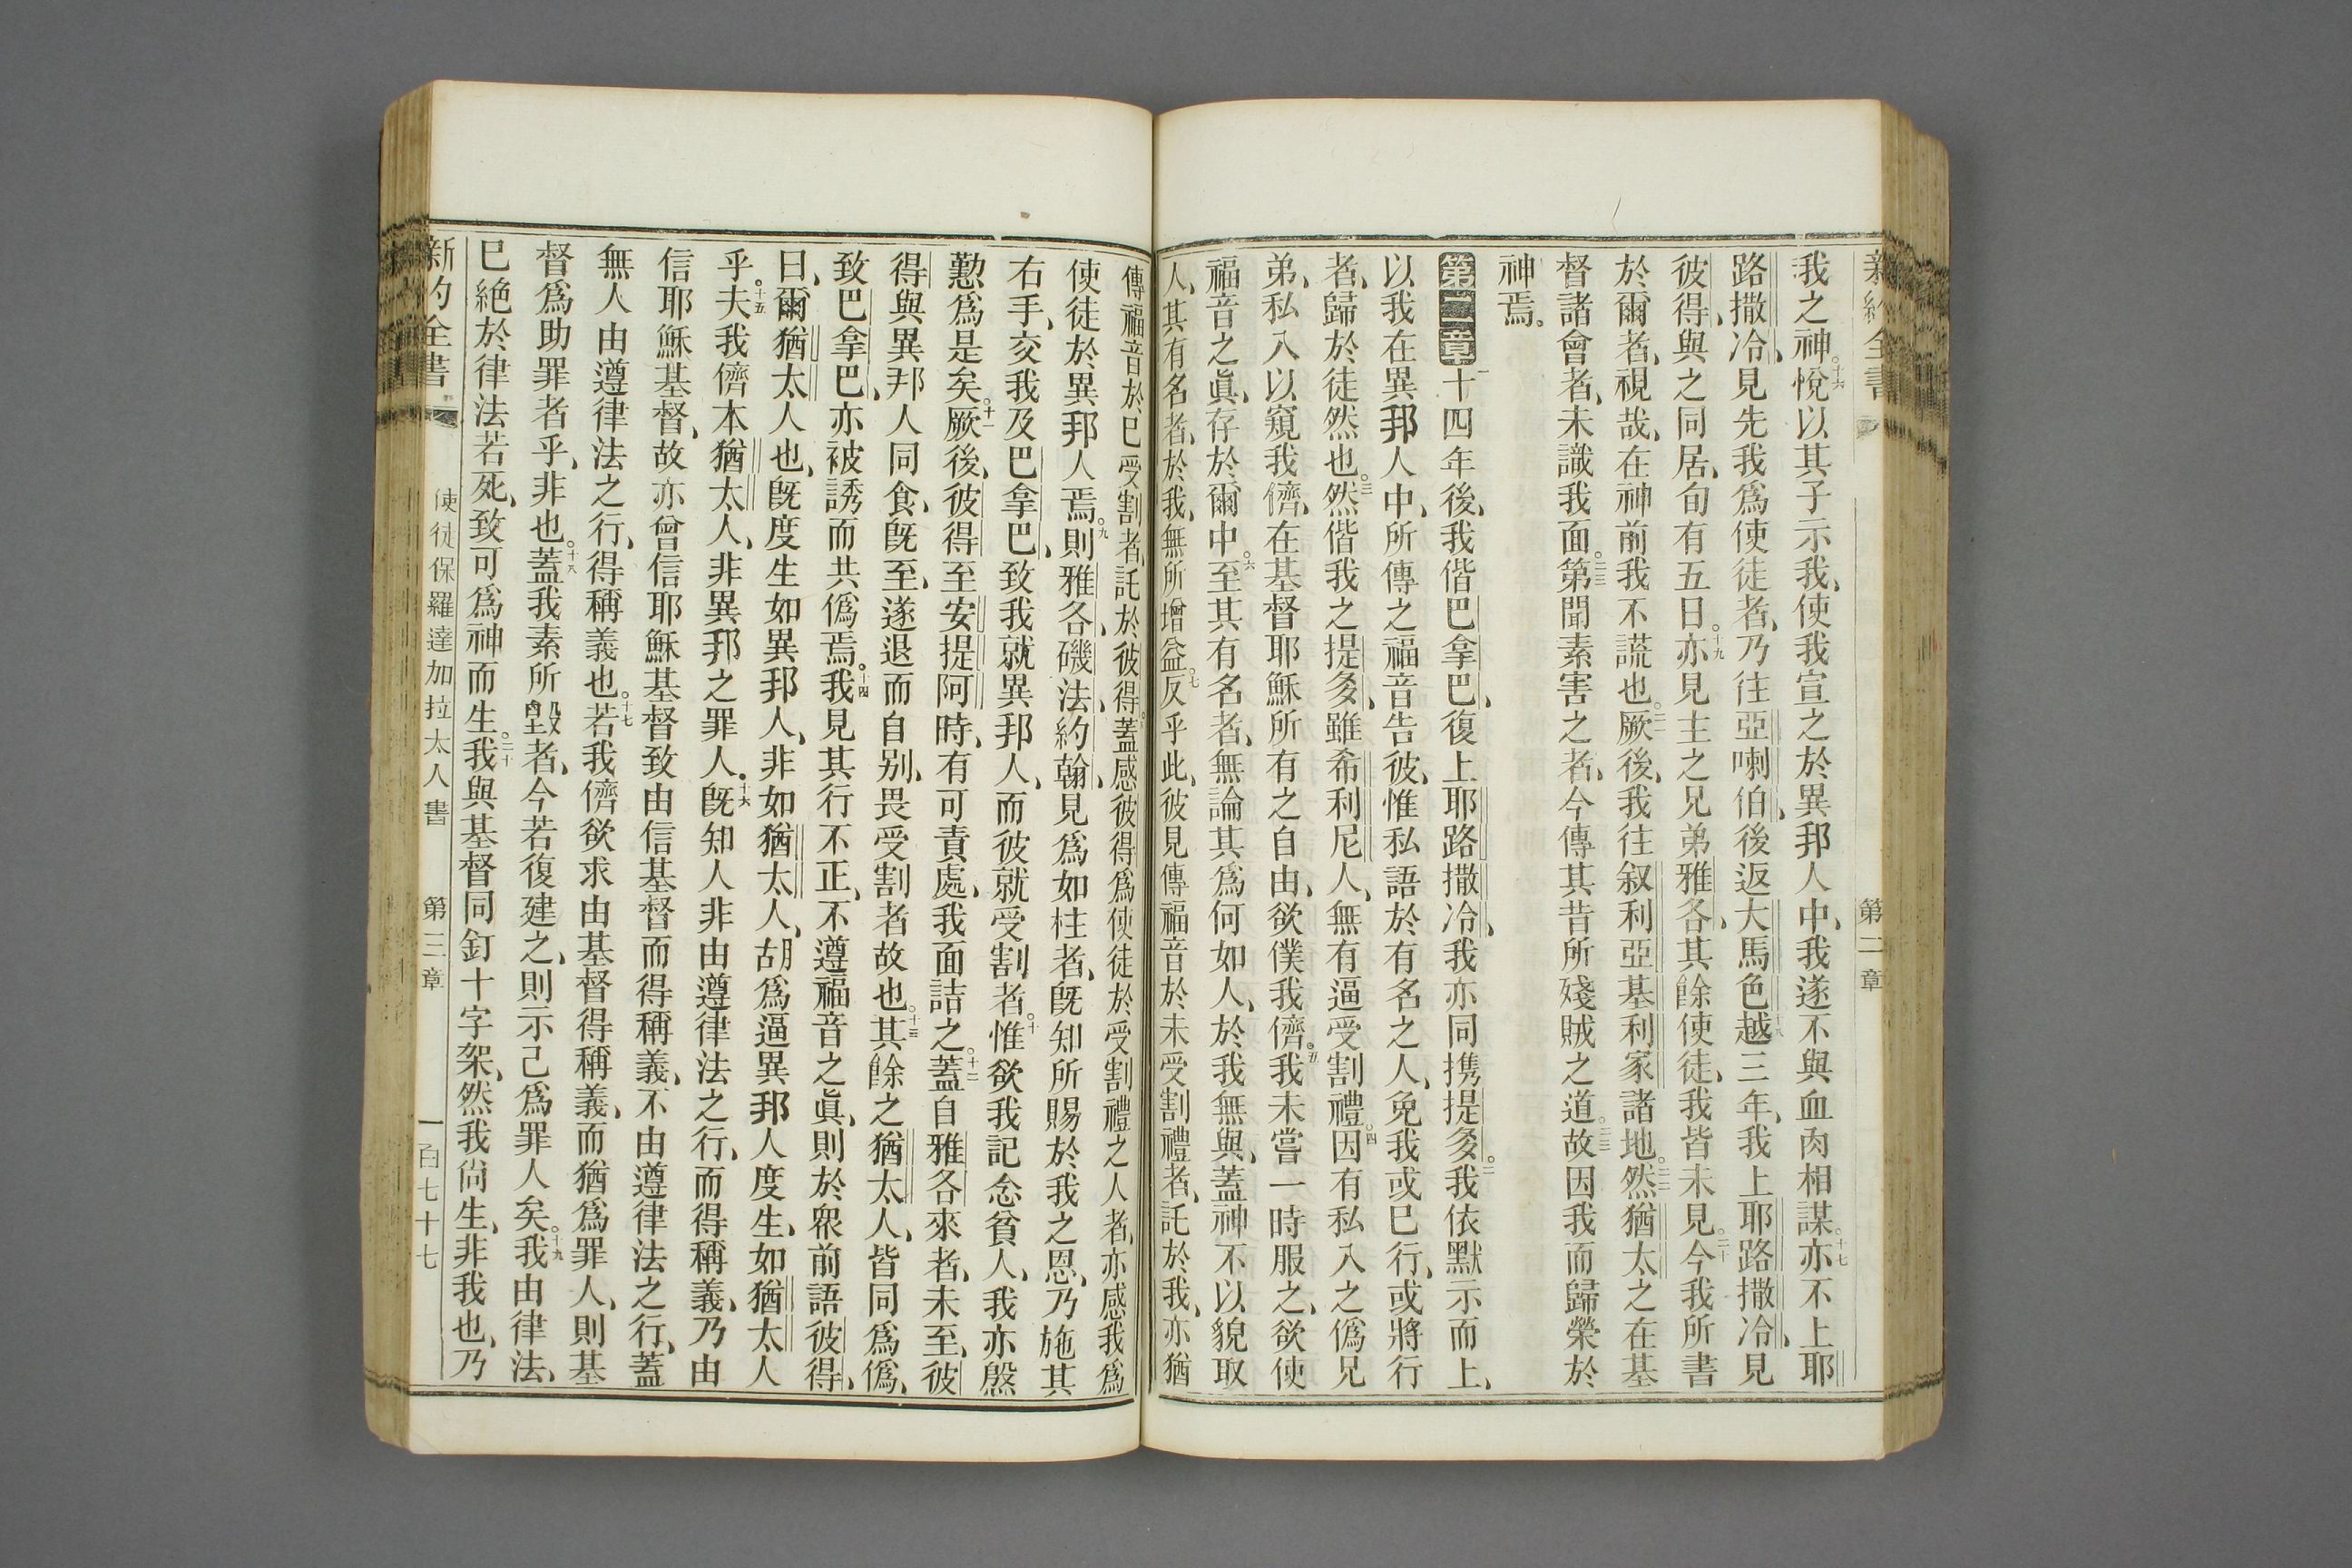 新約全書
第二章
我之神。十六悅以其子示我、使我宣之於異邦人中、我遂不與血肉相謀。十七亦不上耶
路撒冷、見先我爲使徒者、乃往亞喇伯、後返大馬色。十八越三年、我上耶路撒冷、見
彼得、與之同居、旬有五日。十九亦見主之兄弟雅各、其餘使徒、我皆未見。二十今我所書
於爾者、視哉、在神前我不謊也。二一厥後、我往叙利亞基利家諸地。二二然猶太之在基
督諸會者、未識我面。二三第聞素害之者、今傳其昔所殘賊之道。二三故因我而歸榮於
神焉。
第二章一十四年後、我偕巴拿巴、復上耶路撒冷、我亦同携提多。二我依默示而上、
以我在異邦人中、所傳之福音告彼、惟私語於有名之人、免我或已行、或將行
者、歸於徒然也。三然偕我之提多、雖希利尼人、無有逼受割禮。四因有私入之僞兄
弟、私入以窺我儕、在基督耶穌所有之自由、欲僕我儕。五我未嘗一時服之、欲使
福音之眞、存於爾中。六至其有名者、無論其爲何如人、於我無與、蓋神不以貌取
人、其有名者、於我、無所增益。七反乎此、彼見傳福音於未受割禮者、託於我、亦猶
傳福音於已受割者、託於彼得。蓋感彼得爲使徒於受割禮之人者、亦感我爲
使徒於異邦人焉。九則雅各、磯法、約翰、見爲如柱者、旣知所賜於我之恩、乃施其
右手、交我及巴拿巴、致我就異邦人、而彼就受割者。十惟欲我記念貧人、我亦慇
懃爲是矣。十一厥後、彼得至安提阿時、有可責處、我面詰之。十二蓋自雅各來者、未至、彼
得與異邦人同食、旣至、遂退而自別、畏受割者故也。十三其餘之猶太人、皆同爲僞、
致巴拿巴、亦被誘而共僞焉。十四我見其行不正、不遵福音之眞、則於衆前語彼得、
曰、爾猶太人也、旣度生如異邦人、非如猶太人、胡爲逼異邦人度生、如猶太人
乎。十五夫我儕本猶太人、非異邦之罪人。十六旣知人非由遵律法之行、而得稱義、乃由
信耶穌基督、故亦曾信耶穌基督、致由信基督而得稱義、不由遵律法之行、蓋
無人由遵律法之行、得稱義也。十七若我儕欲求由基督得稱義、而猶爲罪人、則基
督爲助罪者乎、非也。十八蓋我素所毀者、今若復建之、則示己爲罪人矣。十九我由律法、
巳絶於律法若死、致可爲神而生。二十我與基督同釘十字架、然我尙生、非我也、乃
新約全書
使徒保羅達加拉太人書
第二章
一百七十七